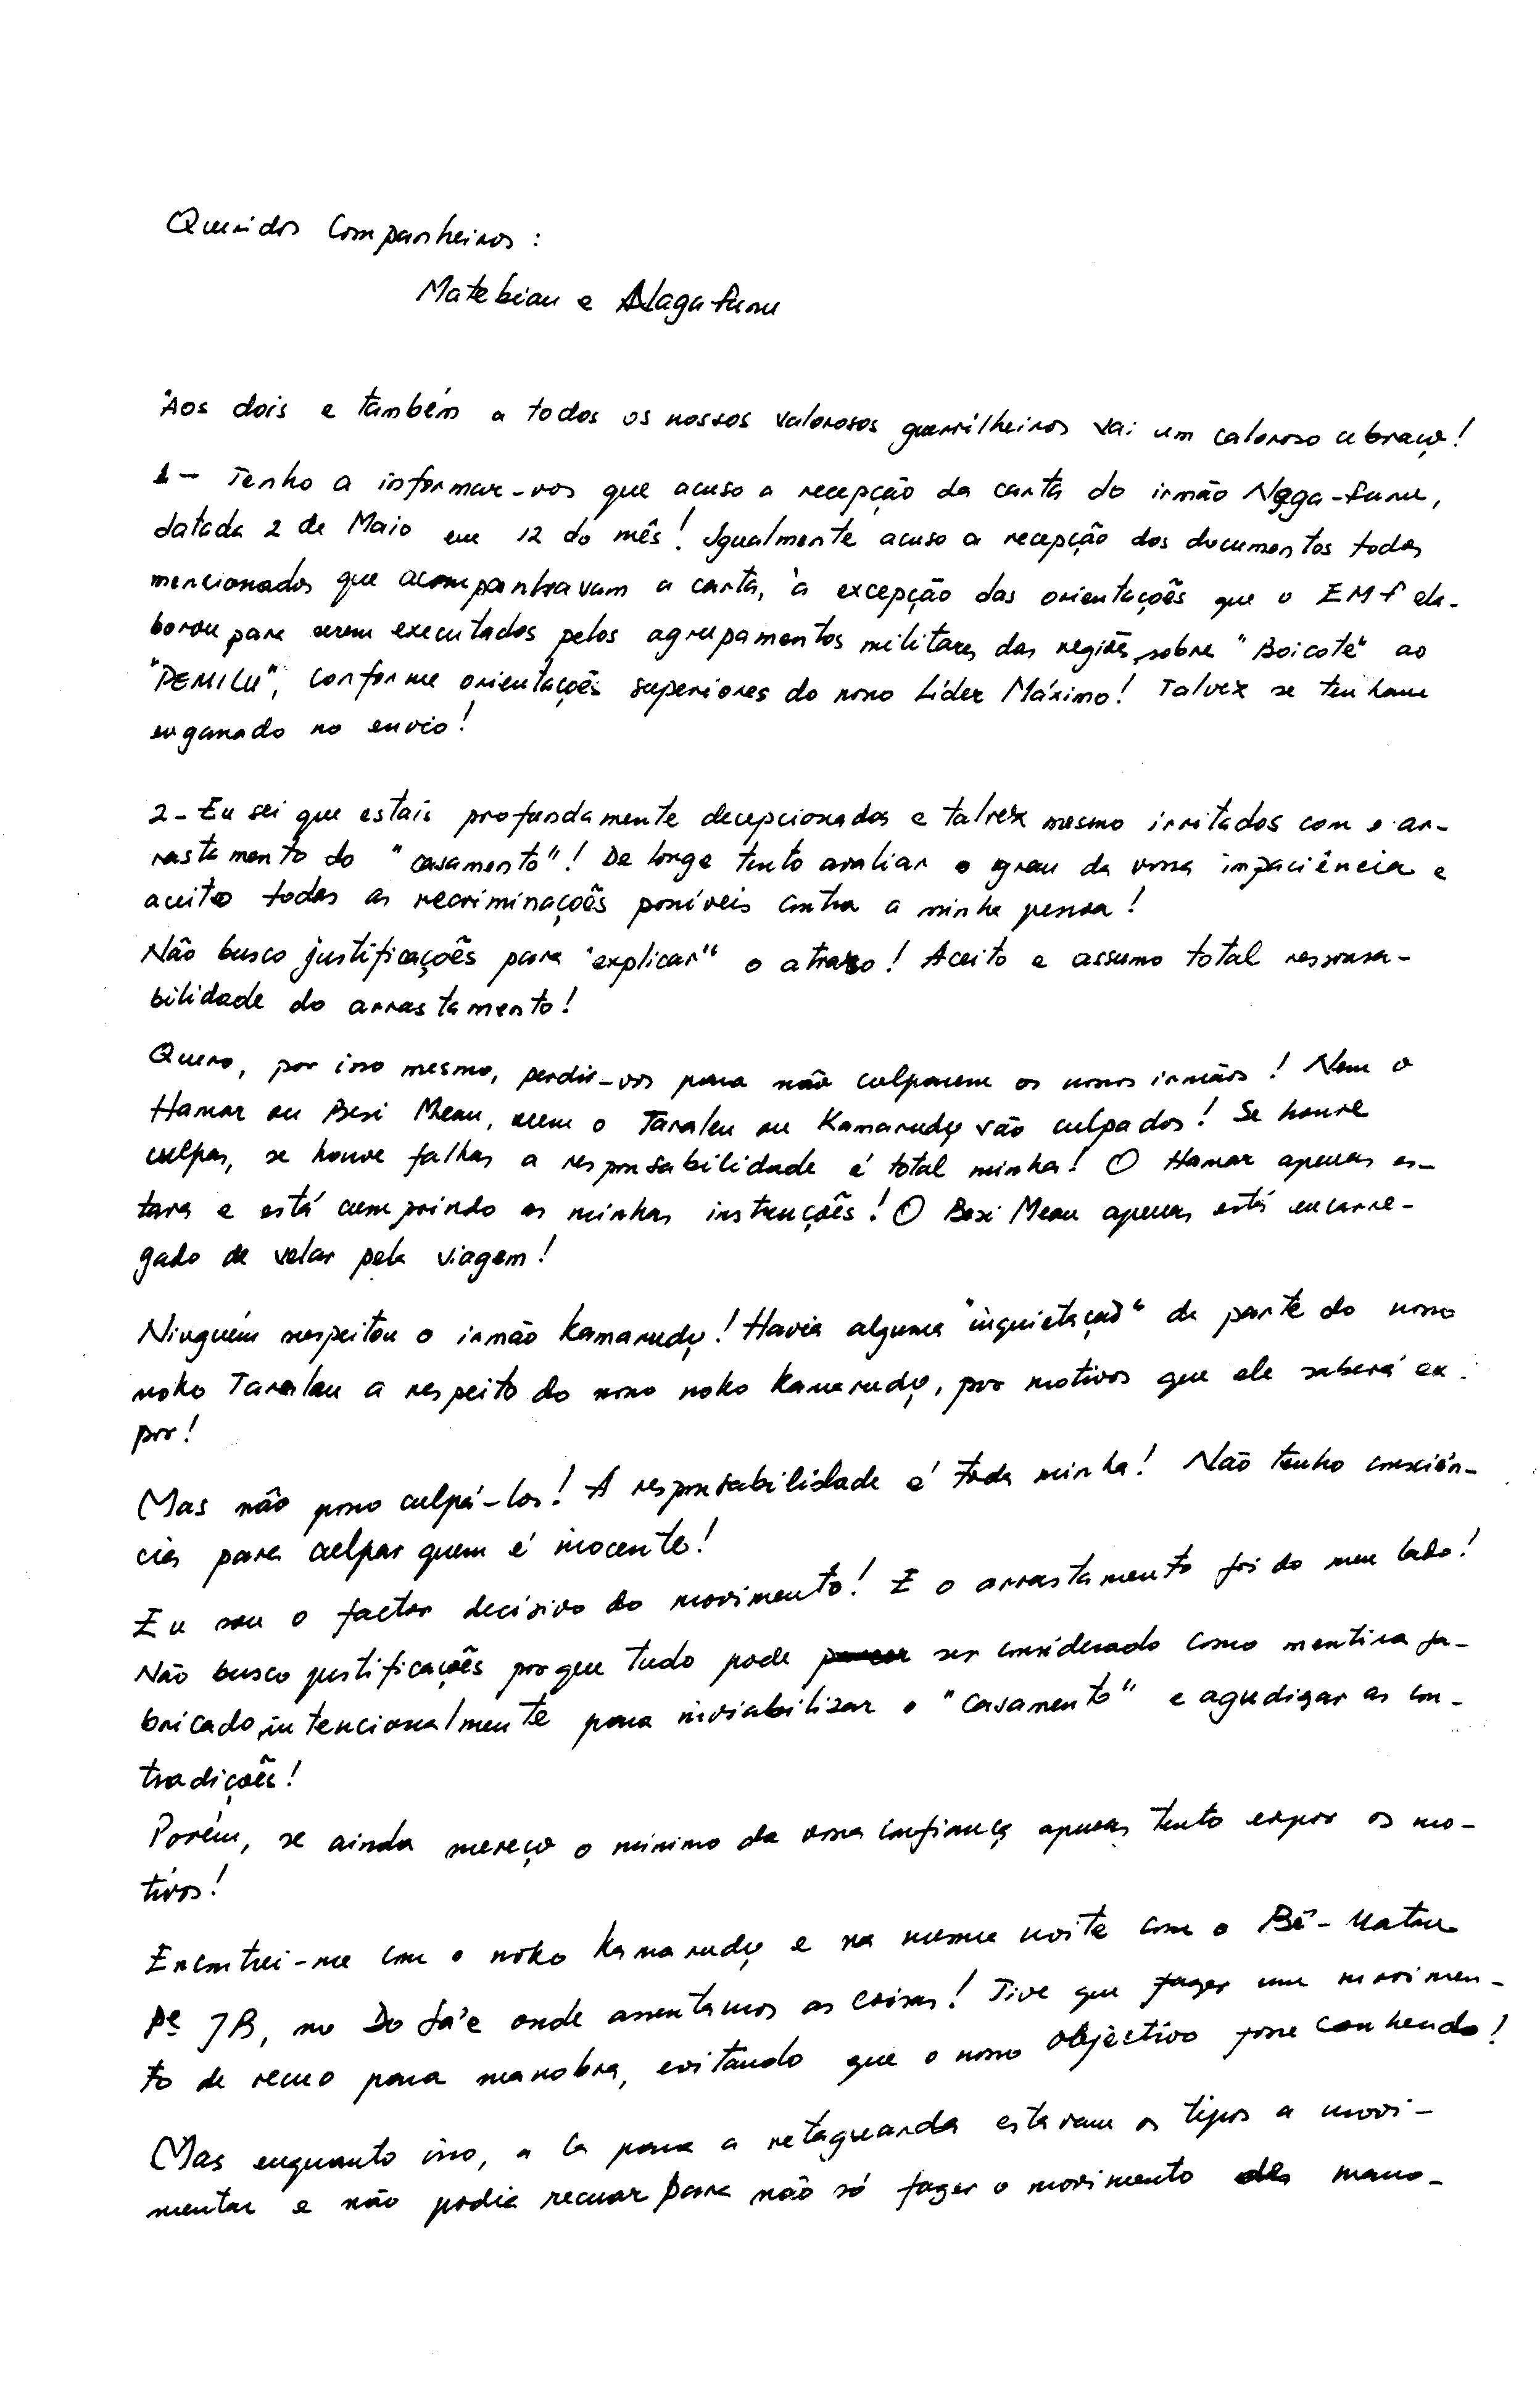 Queridos Companheiros:
Matebian e Nagafunu
Aos dois e também a todos os nossos valorosos guerrilheiros vai um caloroso abraço!
1- Tenho a informar-vos que acuso a recepção da carta do irmão Naga-funu,
datada 2 de Maio em 12 do mês! Igualmente acuso a recepção dos documentos todos
mencionados que acompanhavam a carta, à excepção das orientações que o EMF ela-
borou para serem executados pelos agrupamentos militares das regiões, sobre "Boicote" ao
"PEMILU", conforme orientações superiores do nosso Líder Máximo! Talvez se tenham
enganado no envio!
2- Eu sei que estais profundamente decepcionados e talvez mesmo irritados com o ar-
rastamento do "casamento"! De longe tento avaliar o grau da vossa impaciência e
aceito todas as recriminações possíveis contra a minha pessoa!
Não busco justificações para "explicar" o atraso! Aceito e assumo total responsa-
bilidade do arrastamento!
Quero, por isso mesmo, perdir-vos para não culparem os nossos irmãos! Nem o
Hamar ou Besi Meau, nem o Taraleu ou Kamarudy são culpados! Se houve
culpas, se houve falhas a responsabilidade é total minha! O Hamar apenas es-
tava e está cumprindo as minhas instruções! O Besi Meau apenas está encarre-
gado de velar pela viagem!
Ninguém suspeitou o irmão Kamarudy! Havia alguma "inquietação" de parte do nosso
noko Taraleu a respeito do nosso noko Kamarudy, por motivos que ele saberá ex-
por!
Mas não posso culpá-los! A responsabilidade é toda minha! Não tenho consciên-
cia para culpar quem é inocente!
Eu sou o factor decisivo do movimento! E o arrastamento foi do meu lado!
Não busco justificações porque tudo pode ser considerado como mentira fa-
bricado, intencionalmente para inviabilizar o "casamento" e agudizar as con-
tradições!
Porém, se ainda mereço o mínimo da vossa confiança apenas tento expor os mo-
tivos!
Encontrei-me com o noko Kamarudy e na mesma noite com o Bê-Matan
Pe JB, no Do Sá'e onde assentamos as coisas! Tive que fazer um movimen-
to de recuo para manobra, evitando que o nosso objectivo fosse conhecido!
Mas enquanto isso, a la para a retaguarda estavam os tipos a movi-
mentar e não podia recuar para não só fazer o movimento de mano-